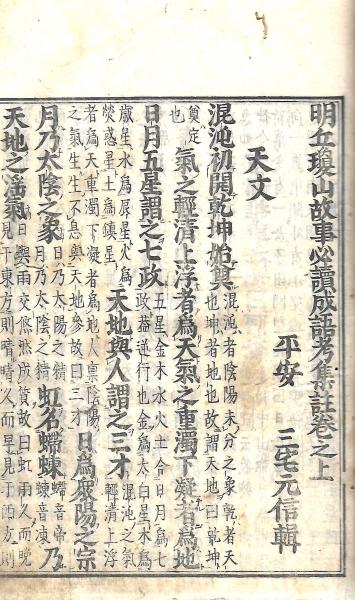 明丘瓊山故事必讀成語考集註卷之上
平安 三宅元信輯
天文
混沌初開乾坤始奠
混沌者陰陽未分之象乾者天
也坤者地也故謂天地曰乾坤
奠定
也
氣之輕清上浮者為天氣之重濁下凝者為地
日月五星謂之七政
五星金木水火土合日月為七
政蓋運行也金為太白星木為
歲星水為辰星火為
熒惑星土為鎮星
天地與人謂之三才
混沌之氣
輕清上浮
者為天重濁下凝者為地人稟陰陽
之氣生生不息與天地參故曰三才
日為衆陽之宗
月乃太陰之象
日乃太陽之精
月乃太陰之精
虹名螮蝀
螮音帝
蝀音凍
乃
天地之淫氣
日與雨交倐然成質故曰虹雨久而晚
見于東方則晴晴久而早見于西方則